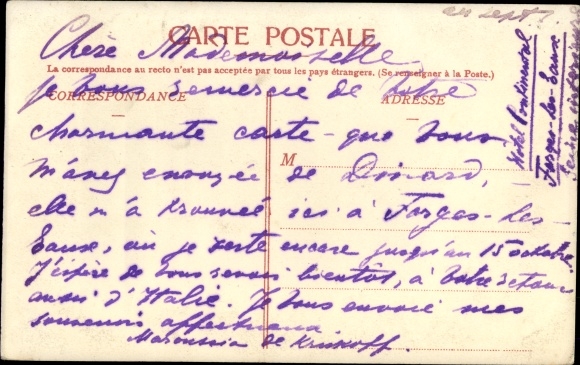 au sept
CARTE POSTALE
Chère Mademoiselle
La correspondance au recto n'est pas acceptée par tous les pays étrangers. (Se renseigner à la Poste.)
je vous remercie de votre
CORRESPONDANCE
ADRESSE
charmante carte que vous
M
m'avez envoyée de Dinard,
elle m'a trouvée ici à Forges-les-
Eaux, où je reste encore jusqu'au 15 octobre.
J'éspère de vous revoir bientot, à votre retour
aussi d'Italie. Je vous envoie mes
souvenirs affectueux
Maroussia de Krivkoff.
Hotel Continental
Forges-les-Eaux
Seine inférieure